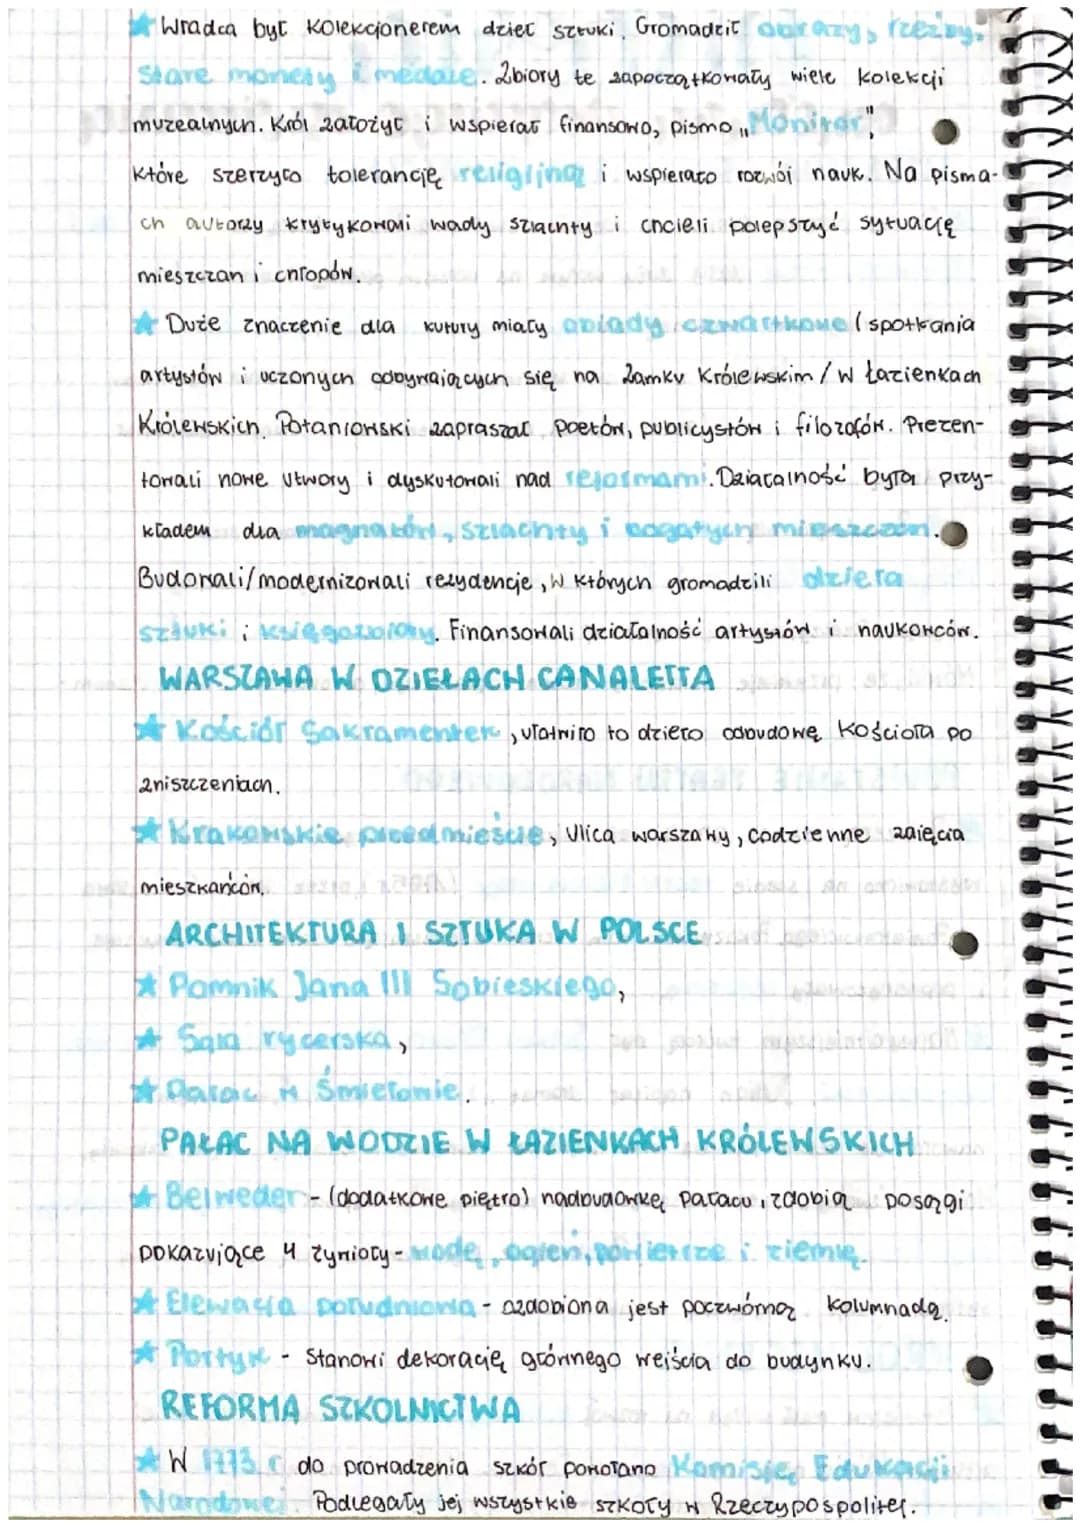 Władca był kolekcjonerem dzieł sztuki. Gromadził obrazy, rzeźby,
stare monety i medale. Zbiory te zapoczątkowały wiele kolekcji
muzealnych. Król założył i wspierał finansowo, pismo „Monitor",
które szerzyło tolerancję religijną i wspierało rozwój nauk. Na pisma-
ch autorzy krytykowali wady szlachty i chcieli polepszyć sytuację
mieszczan i chłopów.
Duże znaczenie dla kutury miały obiady czwartkowe (spotkania
artystów i uczonych odbywających się na Zamku Królewskim / w Łazienkach
Królewskich. Potaniowski zapraszał poetów, publicystów i filozofów. Prezen-
towali nowe utwory i dyskutowali nad reformami. Działalność była przy-
kładem dla magnatów, szlachty i bogatych mieszczan.
Budowali/modernizowali rezydencje, w których gromadzili dzieła
sztuki i księgozbiory. Finansowali działalność artystów i naukowców.
WARSZAWA W DZIEŁACH CANALETTA
Kościół Sakramentek, ułatwiło to dzieło odbudowę Kościoła po
zniszczeniach.
Krakowskie przedmieście, Ulica warszawy, codzienne zajęcia
mieszkańców.
ARCHITEKTURA I SZTUKA W POLSCE
Pomnik Jana III Sobieskiego,
Sala rycerska,
Pałac w Śmiełowie.
PAŁAC NA WODZIE W ŁAZIENKACH KRÓLEWSKICH
Belweder - (dodatkowe piętro) nadbudówkę pałacu, zdobią posągi
pokazujące 4 żywioły - wodę, ogień, powietrze i ziemię.
Elewacja południowa - ozdobiona jest poczwórną kolumnadą.
Portyk - stanowi dekorację głównego wejścia do budynku.
REFORMA SZKOLNICTWA
W 1773 r do prowadzenia szkół powołano Komisję Edukacji
Narodowej. Podlegały jej wszystkie szkoły w Rzeczypospolitej.